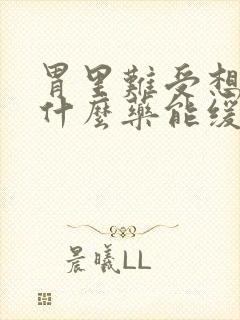 胃里難受想
什麼藥能缓
晨曦LL